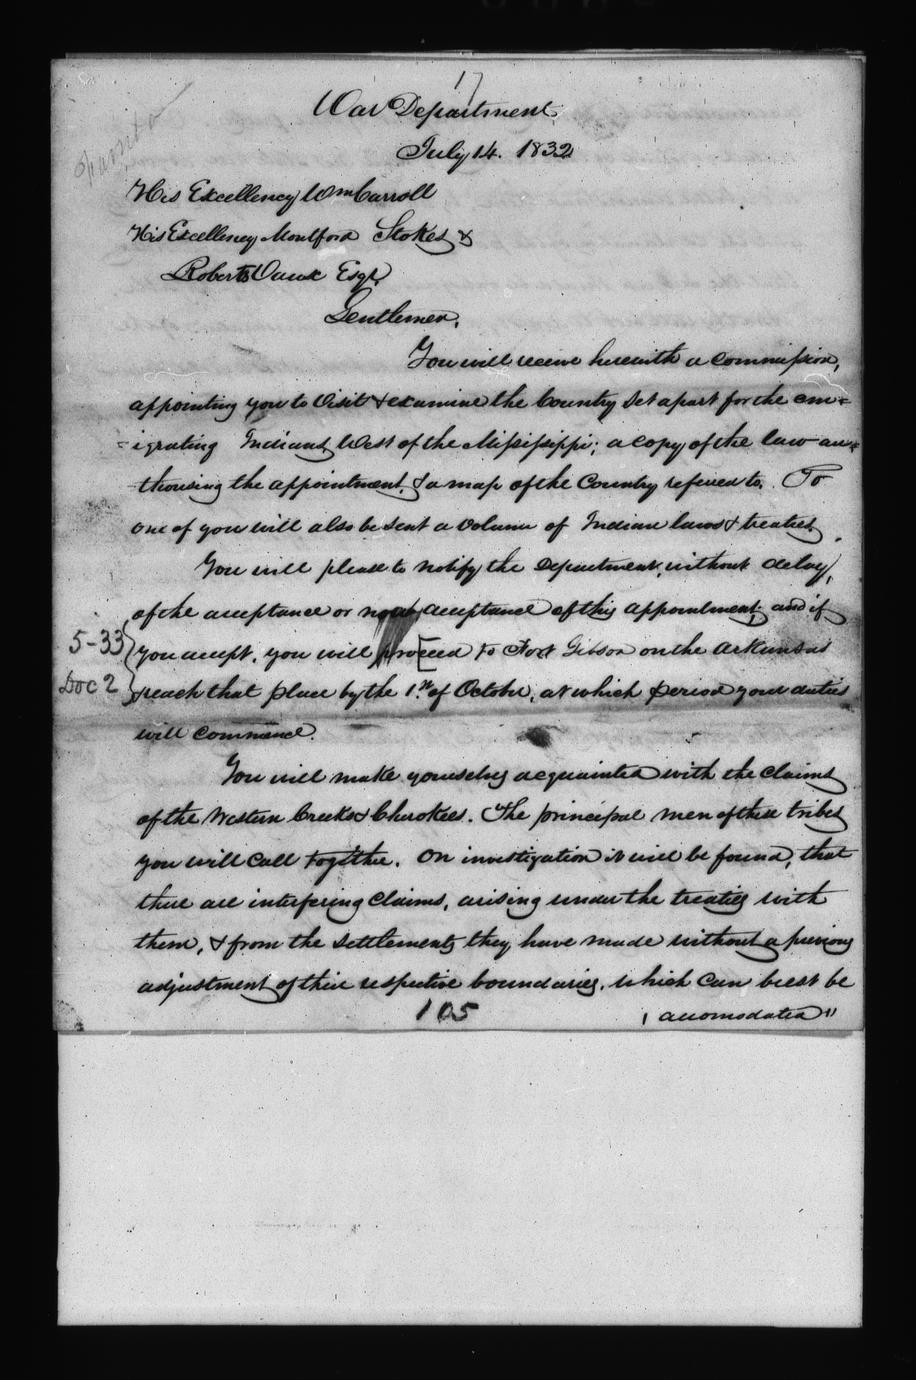 17
War Department
July 14. 1832
His Excellency Wm Carroll
His Excellency Montford Stokes &
Roberts Vaux Esqr.
Gentlemen,
You will receive herewith a commission,
appointing you to visit & examine the Country set apart for the em=
=igrating Indians West of the Missisippi; a copy of the law au=
thorising the appointment, & a map of the Country refered to. To
one of you will also be sent a volume of Indian laws & treaties.
You will please to notify the Department, without delay,
of the acceptance or non acceptance of this appointment; and if
5-33
you accept, you will proceed to Fort Gibson on the Arkansas
Doc 2
reach that place by the 1st of October, at which period your duties
will commence.
You will make yourselves acquainted with the claims
of the Western Creeks & Cherokees. The principal men of these tribes
you will call together. On investigation it will be found, that
there are interfering claims, arising under the treaties with
them, & from the settlements they have made without a previous
adjustment of their respective boundaries, which can best be
105
accomodated